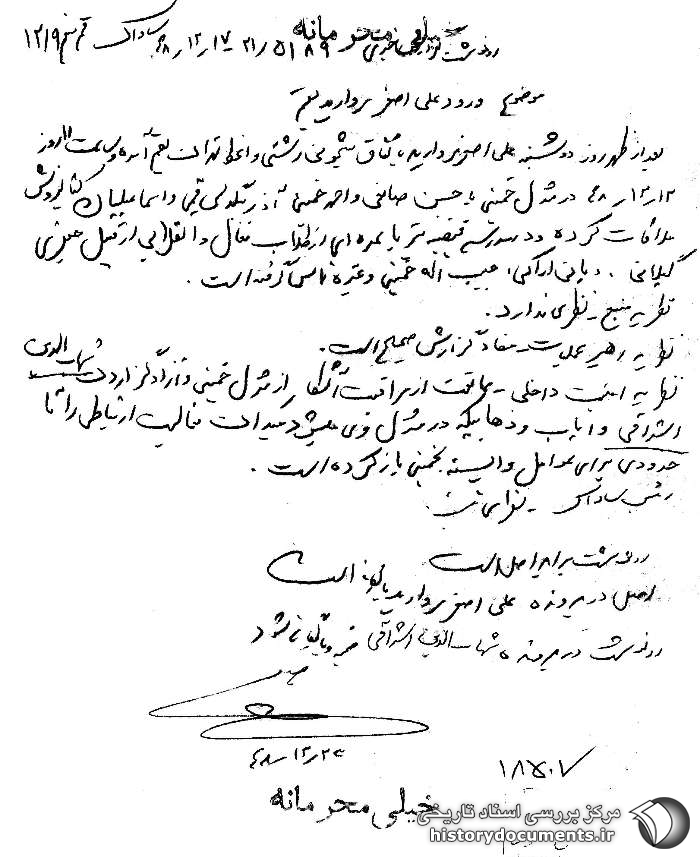 خیلی محرمانه
رونوشت گزارش خبری ۵۱۸۹/۲۱ - ۱۷/۱۲/۴۸ ساواک قم ۱۲۱۹
موضوع ورود علی اصغر مروارید بقم
بعداز ظهر روز دوشنبه علی اصغر مروارید باتفاق رشتی و از تهران بقم آمده و ساعت روز
۱۲/۱۲/۴۸ در منزل خمینی با حسن صانعی و احمد خمینی آذر قمی و اسماعیلیان کتابفروش
ملاقات کرده و در مدرسه با عده ای از طلاب فعال و انقلابی از قبیل
گیلانی، اراکی، حبیب اله خمینی و غیره تماس گرفته است.
نظریه منبع - نظری ندارد.
نظریه رهبر عملیات - مفاد گزارش صحیح است.
نظریه امنیت داخلی - ممانعت از مراقبت آشکار از منزل خمینی و آزاد گزاردن شهاب الدین
اشراقی و ایاب و ذهابیکه در منزل وی میشود میدان فعالیت ارتباطی را تا
حدودی برای عوامل وابسته بخمینی باز کرده است.
رئیس ساواک -
رونوشت برابر اصل است
اصل در پرونده علی اصغر مروارید بایگانی است
رونوشت در پرونده شهاب الدین اشراقی ضمیمه و بایگانی شود
۴۸/۱۲/۲۳
۱۸۵۰۷
خیلی محرمانه
مرکز بررسی اسناد تاریخی
historydocuments.ir